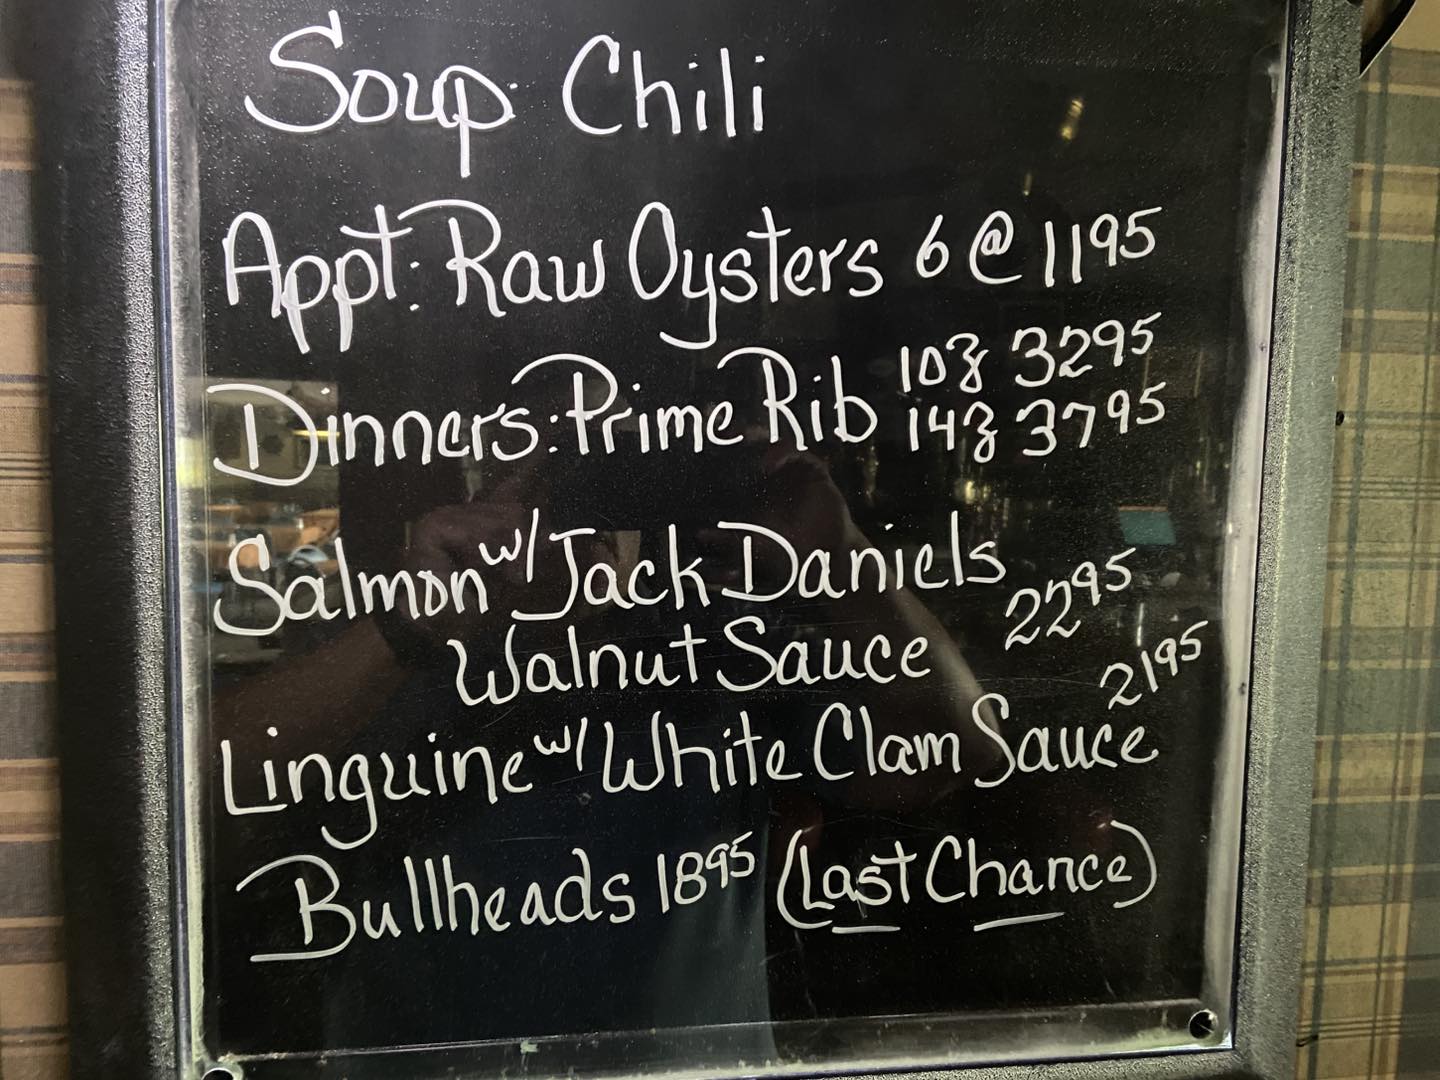 Soup: Chili
Appt: Raw Oysters 6 @ 1195
Dinners: Prime Rib 10z 3295
14z 3795
Salmon w/ Jack Daniels
Walnut Sauce 2295
Linguine w/ White Clam Sauce 2195
Bullheads 1895 (Last Chance)